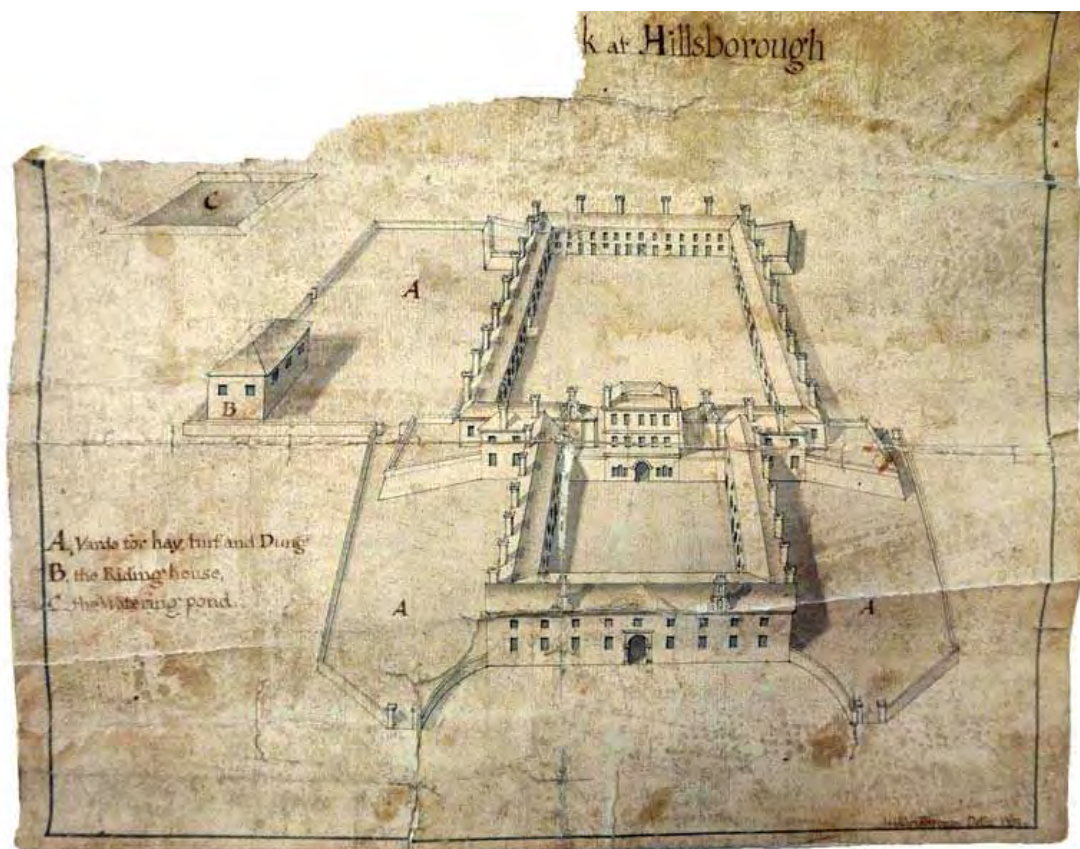 k at Hillsborough
C
A
B
A, Yards for hay, turf and Dung
B, the Riding house,
C, the Watering pond.
A
A